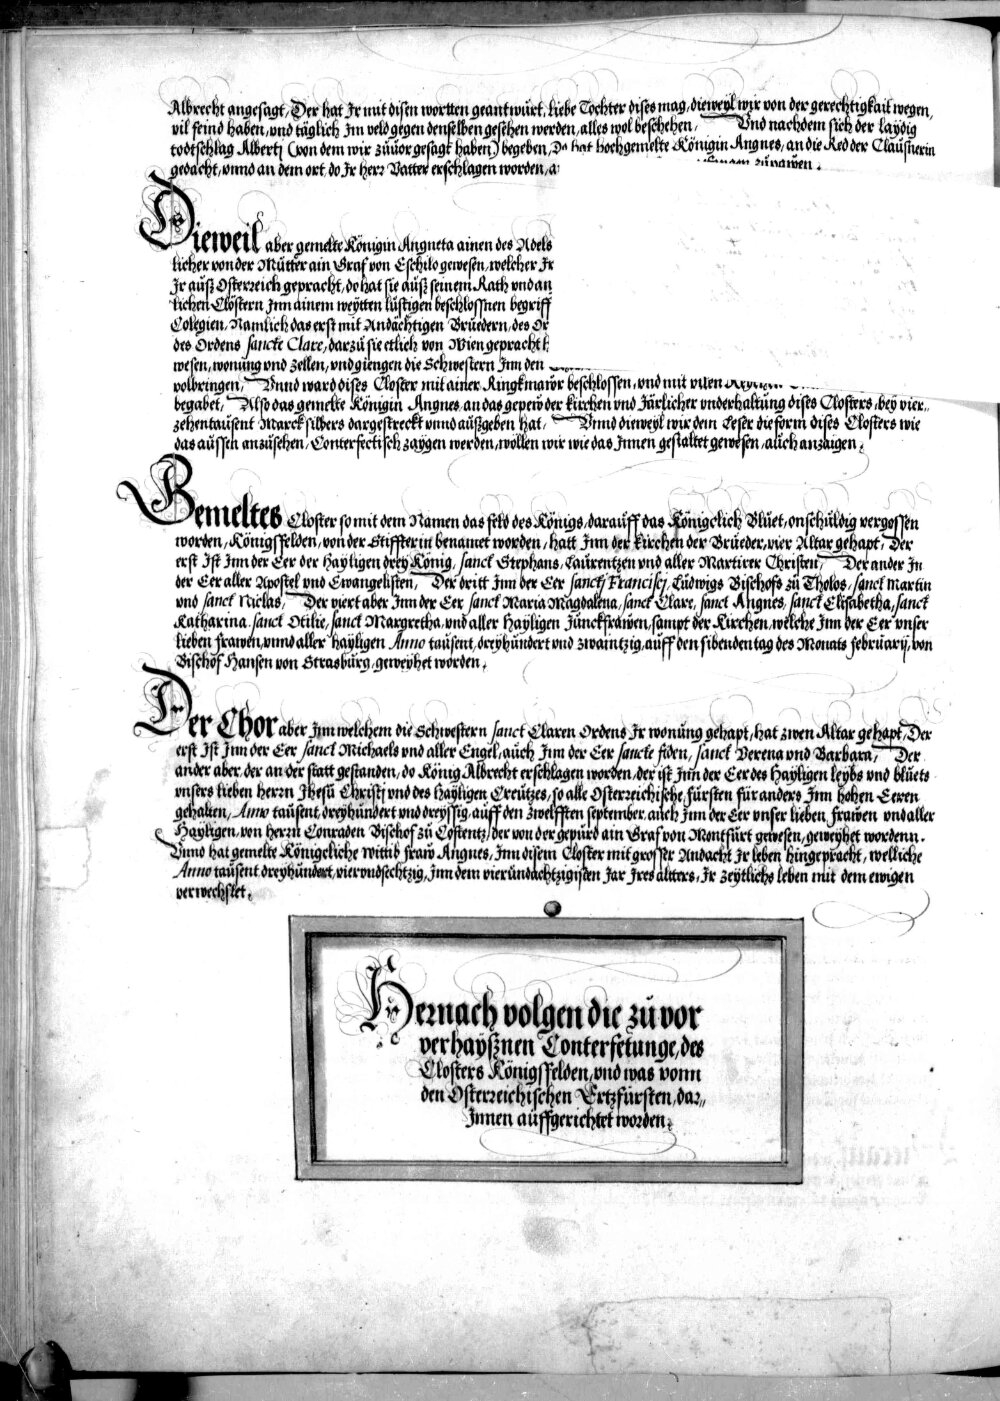 Albrecht angesagt, Der hat Jr mit disen wortten geantwürt, liebe Tochter dises mag, dieweyl wir von der gerechtigkait wegen,
vil feind haben, vnd täglich Jm veld gegen denselben gesehen werden, alles wol beschehen, Vnd nachdem sich der laydig
todtschlag Albertj (von dem wir züuor gesagt haben) begeben, Da hat hochgemelte Königin Angnes, an die Red der Claüsnerin
gedacht, vnnd an dem ort, do Jr herr Vatter erschlagen worden, a zupawen.
Dieweil aber gemelte Königin Angneta ainen des Adels
licher von der Mütter ain Graf von Eschilo gewesen, welcher Jr
Jr auß Osterreich gepracht, do hat sie auß seinem Rath vnd an
lichen Clöstern Jnn ainem weytten lüstigen beschlossnen begriff
Colegien, Namlich das erst mit Andächtigen Brüedern, des Or
des Ordens sanckt Clare, darzü sie etlich von Wien gepracht h
wesen, wonüng vnd zellen, vnd giengen die Schwestern Jnn den
volbringen, Vnnd ward dises Closter mit ainer Ringkmawr beschlossen, vnd mit vilen
begabet, Also das gemelte Königin Angnes, an das gepew der kirchen vnd Järlicher vnderhaltüng dises Closters, bey vier,,
zehentaüsent Marck silbers dargestreckt vnnd außgeben hat, Vnnd dieweyl wir dem Leser die form dises Closters wie
das aüssen anzüsehen, Conterfectisch zaygen werden, wöllen wir wie das Jnnen gestaltet gewesen, aüch anzaigen.
Gemeltes Closter so mit dem Namen das feld des Königs, daraüff das Königclich Blüet, onschüldig vergossen
worden, Königsfelden, von der Stiffterin benamet worden, hatt Jnn der kirchen der Brüeder, vier Altar gehapt, Der
erst Jst Jnn der Eer der Hayligen drey König, sanct Stephans, Laürentzen vnd aller Martirer Christen, Der ander Jn
der Eer aller Apostel vnd Ewangelisten, Der dritt Jnn der Eer sanctj Franciscj, Lüdwigs Bischofs zü Tholos, sanct Martin
vnd sanct Niclas, Der viert aber Jnn der Eer sanct Maria Magdalena, sanct Clare, sanct Angnes, sanct Elisabetha, sanct
Katharina, sanct Otilie, sanct Margretha, vnd aller Hayligen Jünckfrawen, sampt der Kirchen, welche Jnn der Eer vnser
lieben frawen, vnnd aller hayligen Anno taüsent, dreyhündert vnd zwaintzig, aüff den sibenden tag des Monats februarij, von
Bischof Hansen von Strasbürg, geweyhet worden.
Der Chor aber Jnn welchem die Schwestern sanct Claren Ordens Jr wonüng gehapt, hat zwen Altar gehapt, Der
erst Jst Jnn der Eer sanct Michaels vnd aller Engel, aüch Jnn der Eer sancte fiden, sanct Verena vnd Barbara, Der
ander aber, der an der statt gestanden, do König Albrecht erschlagen worden, der ist Jnn der Eer des Hayligen leybs vnd blüets
vnsers lieben herrn Jhesü Christj vnd des Hayligen Creützes, so alle Osterreichische fürsten für anders Jnn hohen Eeren
gehalten, Anno taüsent, dreyhündert vnd dreyssig, aüff den zwelfften september, aüch Jnn der Eer vnser lieben frawen vnd aller
Hayligen, von herrn Conraden Bischof zü Costentz, der von der gepürd ain Graf von Montfürt gewesen, geweyhet wordenn.
Vnnd hat gemelte Königcliche Wittib fraw Angnes, Jnn disem Closter mit grosser Andacht Jr leben hingepracht, welliche
Anno taüsent dreyhündert, vier vnd sechtzig, Jnn dem vier ündachtzigisten Jar Jres alters, Jr zeytlichs leben mit dem ewigen
verwechslet.
Hernach volgen die züuor
verhayßnen Conterfetunge, des
Closters Königsfelden, vnd was vonn
den Osterreichischen Ertzfürsten, dar,,
Jnnen aüffgerichtet worden.